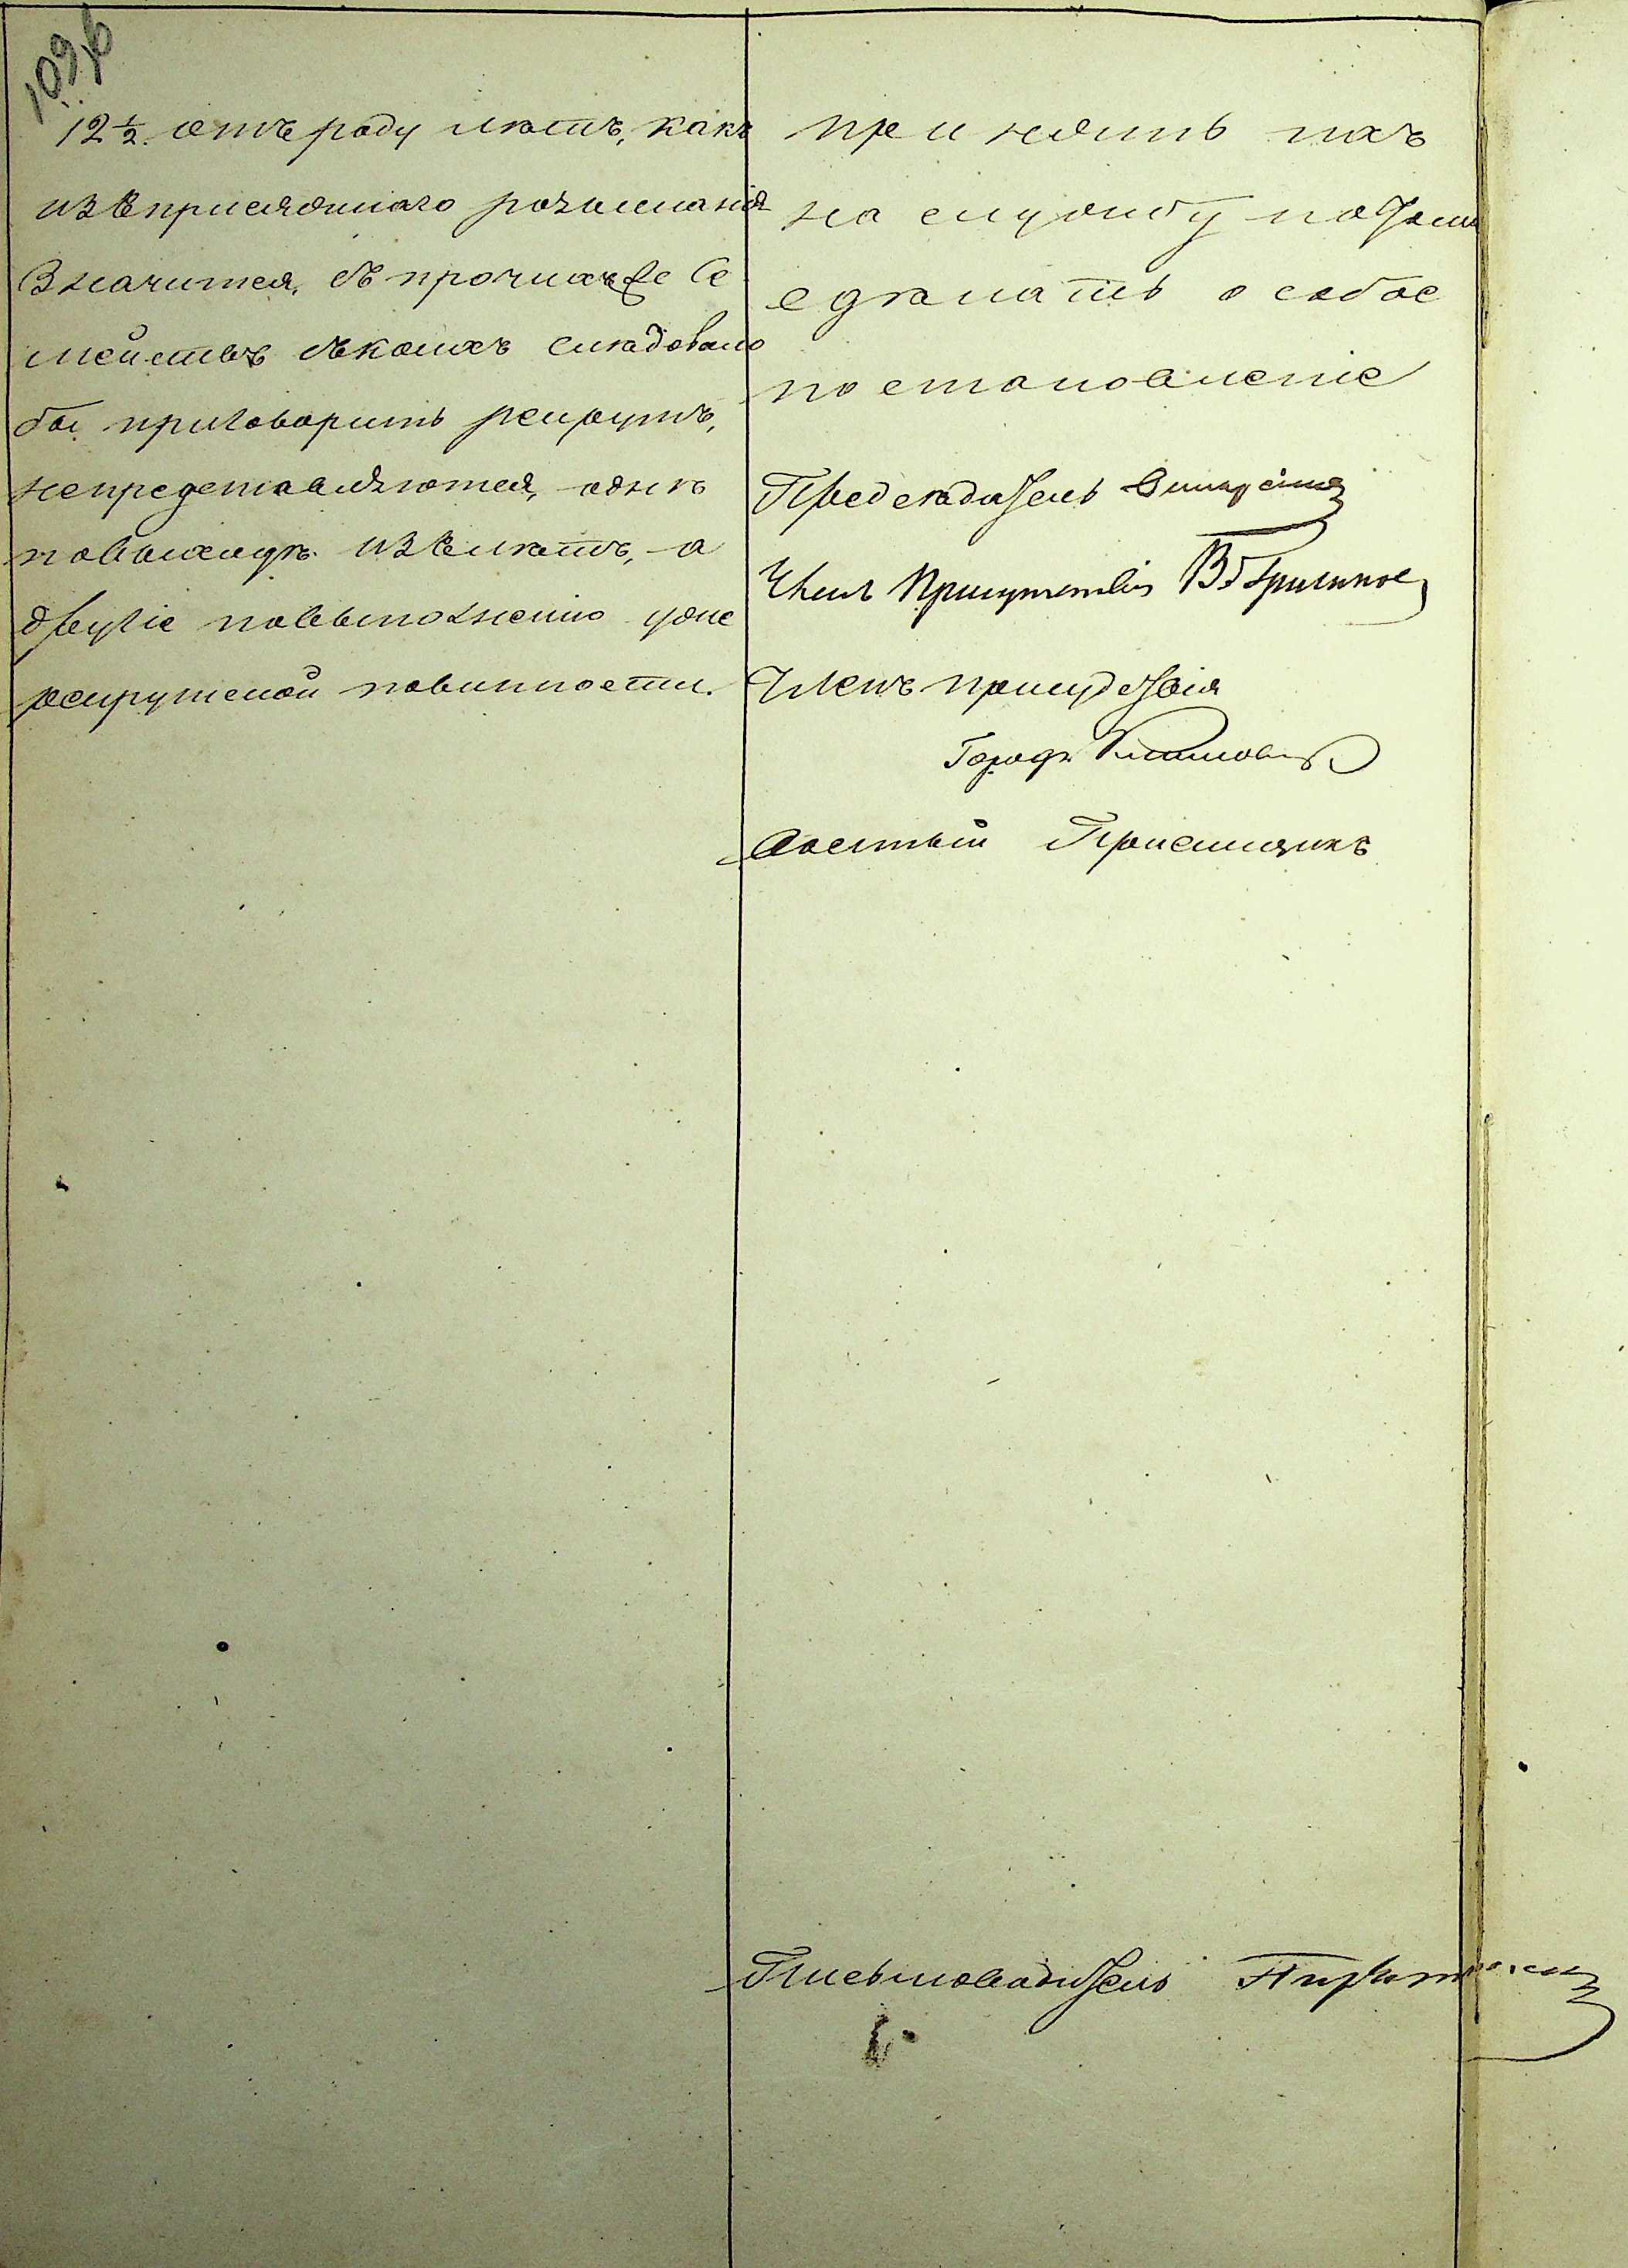 109б
12 ½. отъ роду лѣтъ, какъ
изъ присяжнаго розысканія
Значится, съ прочихъ же Се
мействъ съ коихъ слѣдовало
бы приговорить рекрутъ,
непредставляются, однѣ
повыходѣ изъ лѣтъ, а
другіе повыполненію уже
рекрутской повинности.
принять ихъ
на службу почему
сдѣлать особое
постановленіе
Предсѣдатель
Членъ Присутствія
Членъ присудствія
Городн.
Военный Пріемщикъ
Письмоводитель